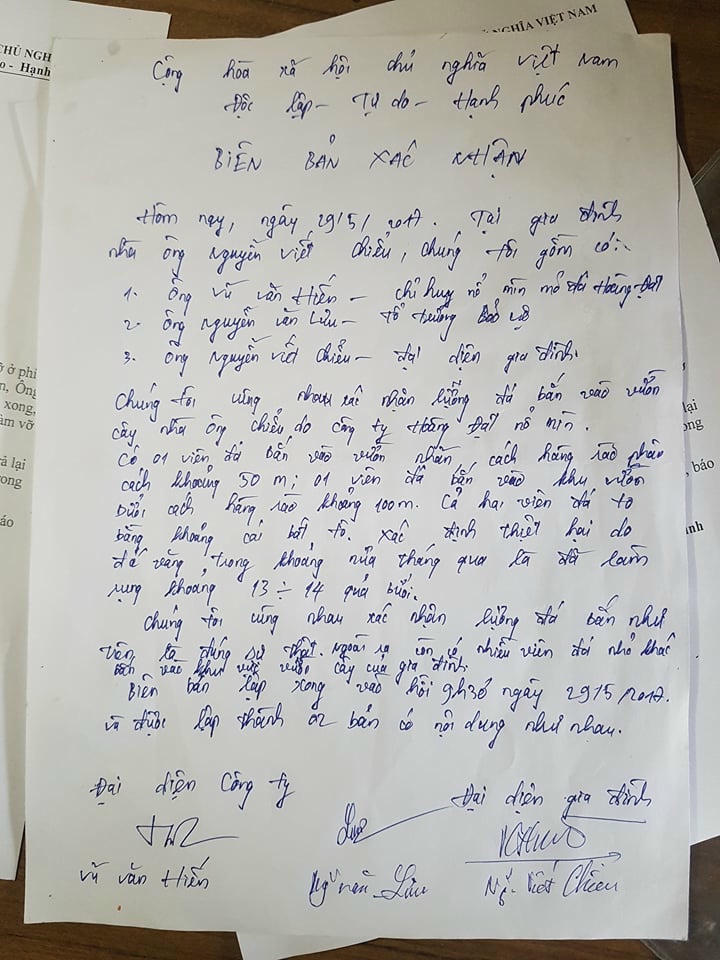 CHỦ NGH
o - Hạnh
HỦ NGHĨA VIỆT NAM
Cộng hòa xã hội chủ nghĩa việt Nam
Độc lập - Tự do - Hạnh phúc
BIÊN BẢN XÁC NHẬN
Hôm nay, ngày 29/5/2017. Tại gia đình
nhà ông nguyễn viết chiểu, chúng tôi gồm có:
1. Ông vũ văn Hiến - chỉ huy nổ mìn mỏ đá Hoàng Đạt
2. Ông nguyễn văn Lưu - tổ trưởng Bảo vệ
3. Ông nguyễn viết chiểu - đại diện gia đình.
Chúng tôi cùng nhau xác nhận lượng đá bắn vào vườn
cây nhà ông chiểu do công ty Hoàng Đạt nổ mìn.
Có 01 viên đá bắn vào vườn nhãn, cách hàng rào phân
cách khoảng 50 m; 01 viên đá bắn vào khu vườn
bưởi cách hàng rào khoảng 100m. Cả hai viên đá to
bằng khoảng cái bát tô. xác định thiệt hại do
đá văng trong khoảng nửa tháng qua là đã làm
rụng khoảng 13 ÷ 14 quả bưởi.
Chúng tôi cùng nhau xác nhận lượng đá bắn như
trên là đúng sự thật. Ngoài ra còn có nhiều viên đá nhỏ khác
bắn vào khu vực vườn cây của gia đình.
Biên bản lập xong vào hồi 9h30 ngày 29/5/2017.
và được lập thành 02 bản có nội dung như nhau.
Đại diện Công ty
Đại diện gia đình
vũ văn Hiến
Ng văn Lưu
Ng. Viết Chiểu
ỡ ở phí
n, Ông
xong,
àm vỡ
rả lại
rong
áo
lại
ong
, báo
anh